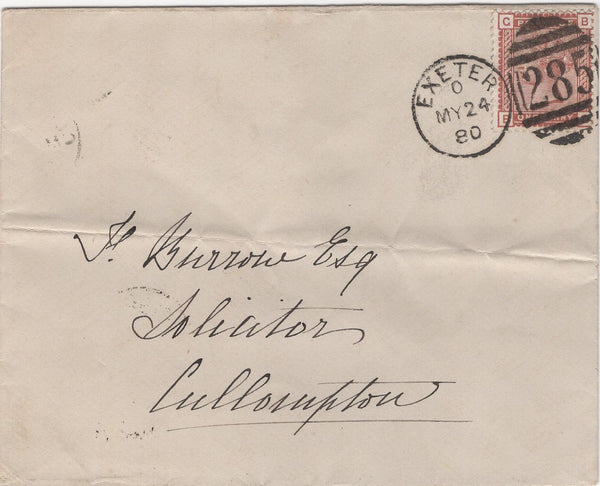 G B
EXETER
O
MY 24
80
285
B
ONE PENNY
F. Burrow Esq
Solicitor
Cullompton